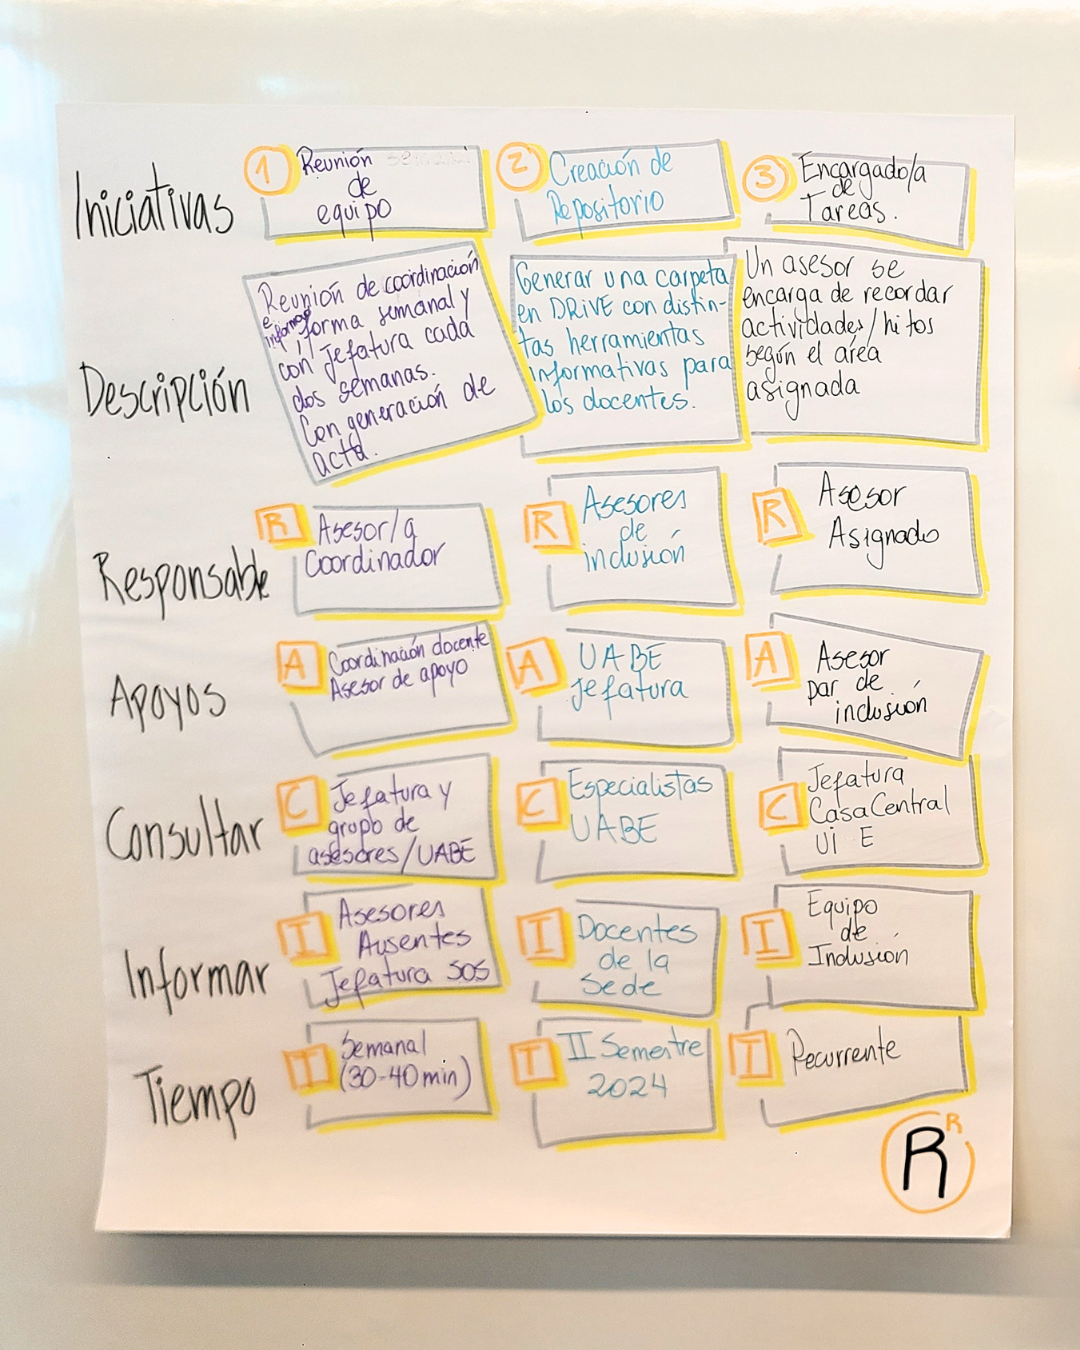 Iniciativas
1 Reunión semanal
de
equipo
2 Creación de
Repositorio
3 Encargado/a
de
Tareas.
Descripción
Reunión de coordinación
e informar forma semanal y
con jefatura cada
dos semanas.
Con generación de
acta.
Generar una carpeta
en DRiVE con distin-
tas herramientas
informativas para
los docentes.
Un asesor se
encarga de recordar
actividades/hitos
según el área
asignada
Responsable
R Asesor/a
Coordinador
R Asesores
de
inclusión
R Asesor
Asignado
Apoyos
A Coordinación docente
Asesor de apoyo
A UABE
Jefatura
A Asesor
par de
inclusión
Consultar
C Jefatura y
grupo de
asesores/UABE
C Especialistas
UABE
C Jefatura
Casa Central
Ui E
Informar
I Asesores
Ausentes
Jefatura SOS
I Docentes
de la
Sede
I Equipo
de
Inclusión
Tiempo
T Semanal
(30-40 min)
T II Semestre
2024
T Recurrente
R R